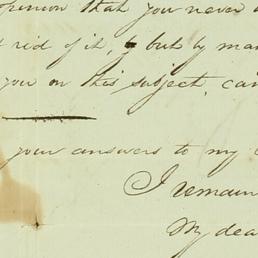 opinion that you never
rid of it, but by
you on this subject, can
your answers to my
I remain
My dear